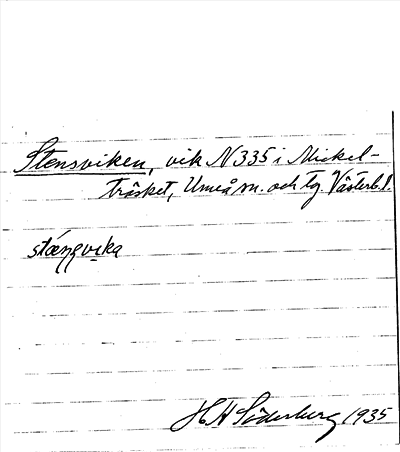 Stensviken, vik N335 i Mickel-
träsket, Umeå sn. och tg. Västerb. l.
stæŋvika
H. H Söderberg 1935